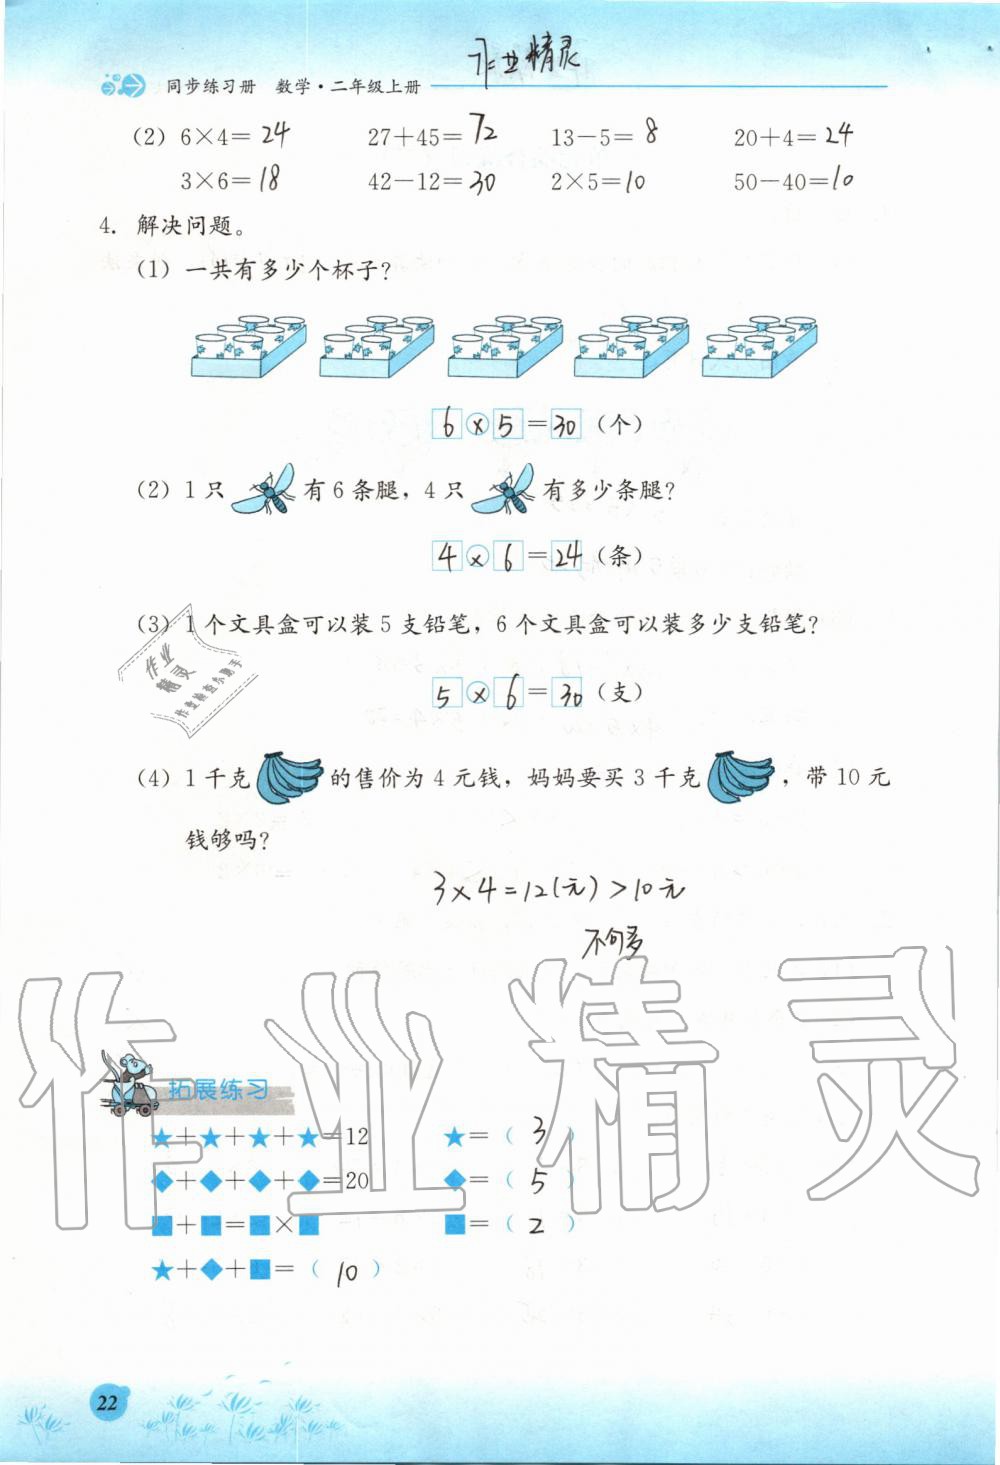 作业精灵
同步练习册 数学·二年级上册
(2) 6×4=24 27+45=72 13-5=8 20+4=24
3×6=18 42-12=30 2×5=10 50-40=10
4. 解决问题。
(1) 一共有多少个杯子?
6×5=30(个)
(2) 1只 有6条腿,4只 有多少条腿?
4×6=24(条)
(3) 1个文具盒可以装5支铅笔,6个文具盒可以装多少支铅笔?
作业
精灵
作业检查小助手
5×6=30(支)
(4) 1千克 的售价为4元钱,妈妈要买3千克 ,带10元
钱够吗?
3×4=12(元)>10元
不够
作业精灵
拓展练习
★+★+★+★=12 ★=( 3 )
◆+◆+◆+◆=20 ◆=( 5 )
■+■=■×■ ■=( 2 )
★+◆+■=( 10 )
22